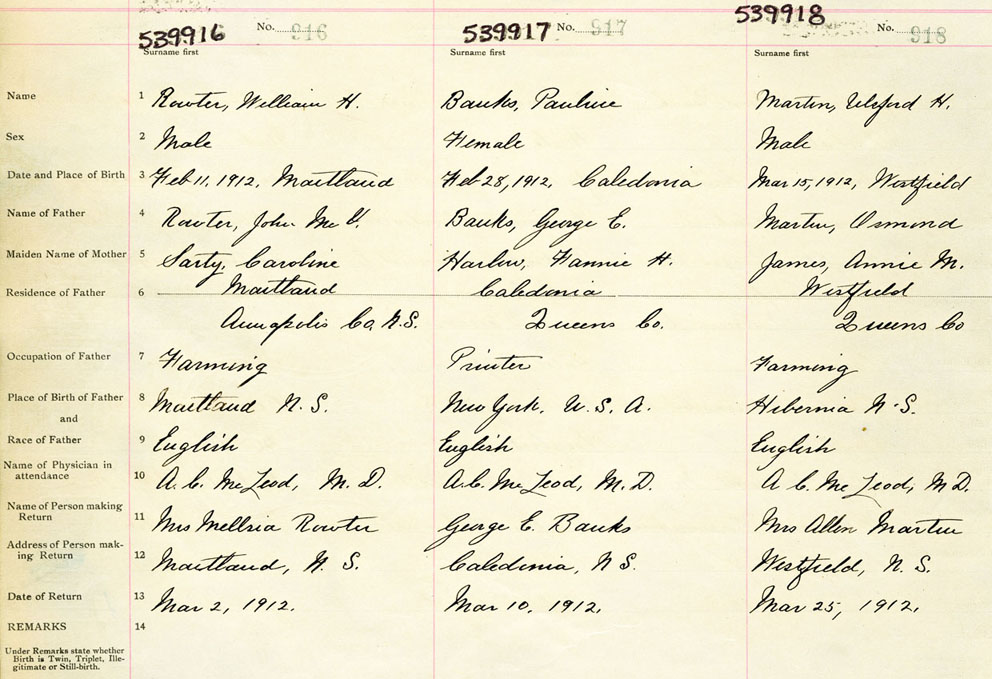 539916 No. 916 539917 No. 917 539918 No. 918
Surname first Surname first Surname first
Name 1 Rowter, William H. Banks, Pauline Martin, H.
Sex 2 Male Female Male
Date and Place of Birth 3 Feb 11, 1912, Maitland Feb 28, 1912, Caledonia Mar 15, 1912, Westfield
Name of Father 4 Rowter, John Mc V. Banks, George E. Martin, Osmond
Maiden Name of Mother 5 Sarty, Caroline Harlow, Fannie H. James, Annie M.
Residence of Father 6 Maitland Caledonia Westfield
Annapolis Co. N.S. Queens Co. Queens Co
Occupation of Father 7 Farming Printer Farming
Place of Birth of Father 8 Maitland N. S. New York, U. S. A. Hibernia N. S.
and
Race of Father 9 English English English
Name of Physician in
attendance 10 A. C. McLeod, M. D. A. C. McLeod, M. D. A C. McLeod, M D.
Name of Person making
Return 11 Mrs Rowter George E. Banks Mrs Allen Martin
Address of Person mak-
ing Return 12 Maitland, N. S. Caledonia, N S. Westfield, N. S.
Date of Return 13 Mar 2, 1912. Mar 10, 1912, Mar 25, 1912,
REMARKS 14
Under Remarks state whether
Birth is Twin, Triplet, Ille-
gitimate or Still-birth.